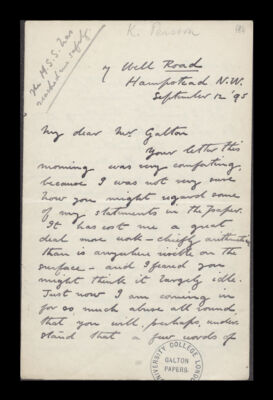 K. Pearson
The M.S.S. has
reached me safely
7 Well Road
Hampstead N.W.
September 12 '95
My dear Mr. Galton
Your letter this
morning was very comforting,
because I was not very sure
how you might regard some
of my statements in the paper.
It has cost me a great
deal more work - chiefly
than is anywhere visible on the
surface - and I feared you
might think it largely idle.
Just now I am coming in
for so much abuse all round,
that you will, perhaps, under-
stand that a few words of
UNIVERSITY COLLEGE LONDON
GALTON
PAPERS